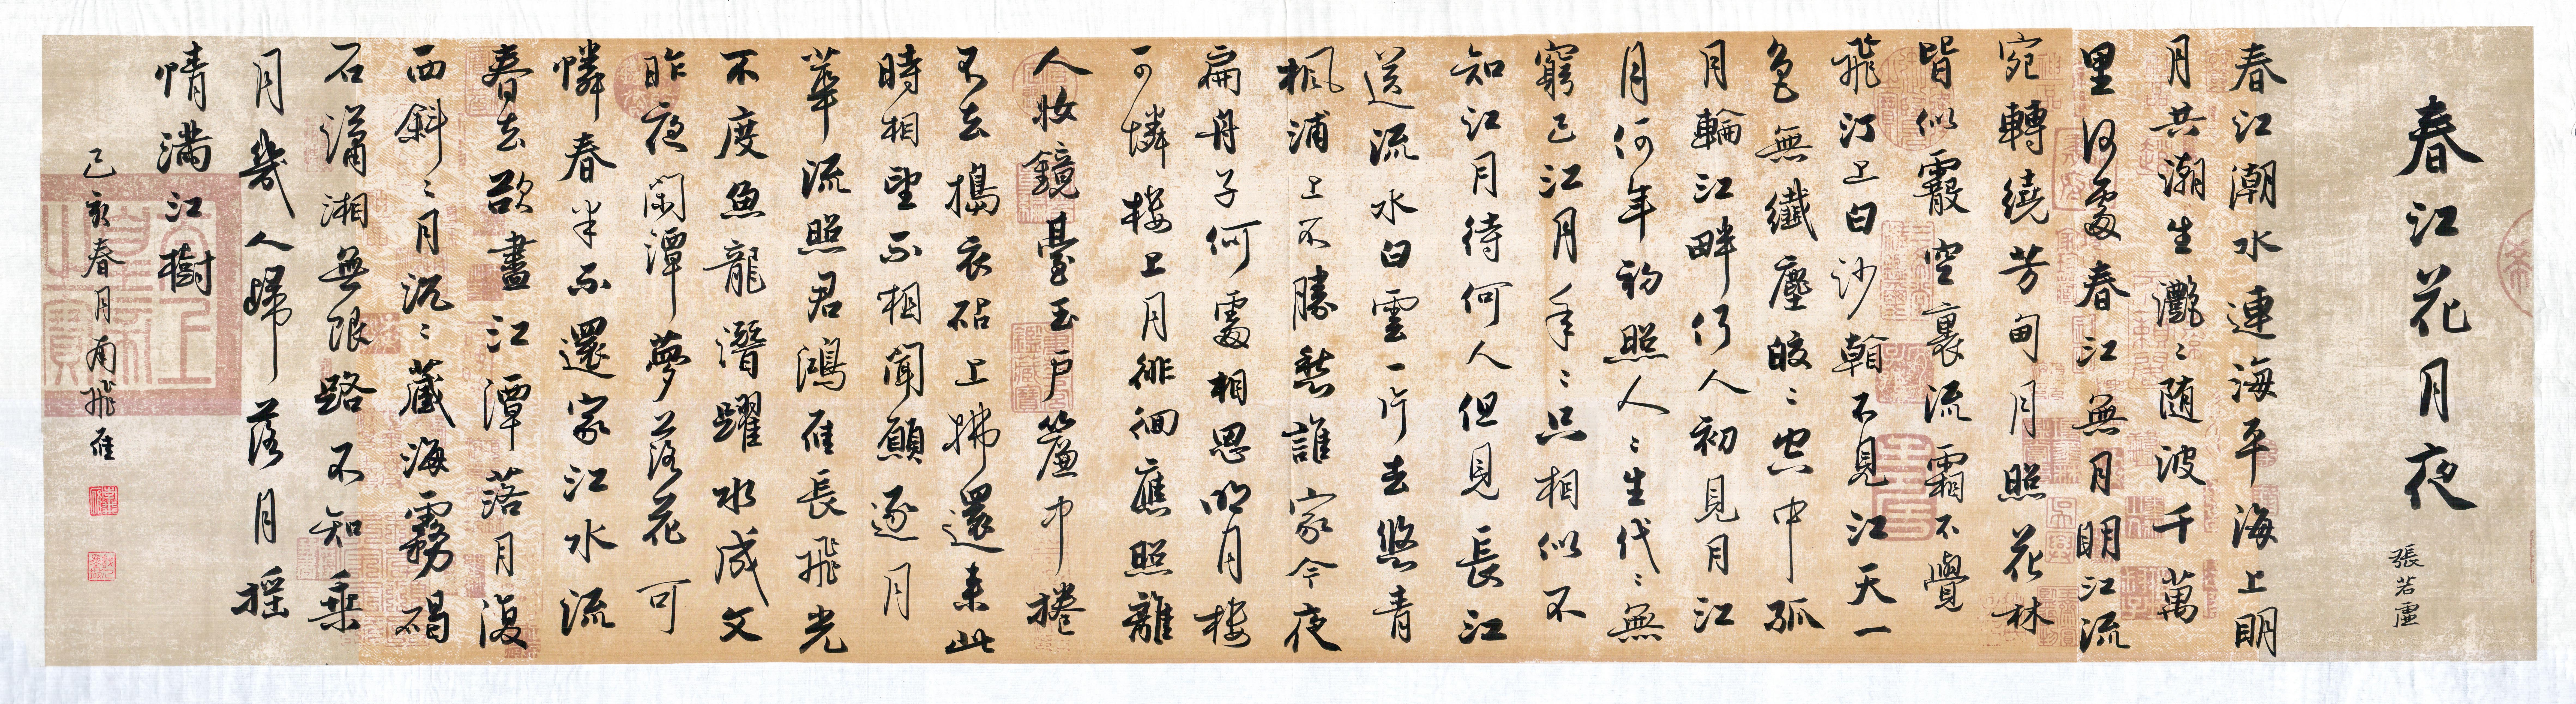 春江花月夜
張若虛
春江潮水連海平海上明
月共潮生灧〻随波千萬
里何處春江無月明江流
宛轉繞芳甸月照花林
皆似霰空裏流霜不覺
飛汀上白沙看不見江天一
色無纖塵皎〻空中孤
月輪江畔何人初見月江
月何年初照人〻生代〻無
窮已江月年〻只相似不
知江月待何人但見長江
送流水白雲一片去悠青
楓浦上不勝愁誰家今夜
扁舟子何處相思明月樓
可憐樓上月徘徊應照離
人妝鏡臺玉戶簾中捲
不去搗衣砧上拂還來此
時相望不相聞願逐月
華流照君鴻雁長飛光
不度魚龍潛躍水成文
昨夜閑潭夢落花可
憐春半不還家江水流
春去欲盡江潭落月復
西斜〻月沉〻藏海霧碣
石瀟湘無限路不知乘
月幾人歸落月搖
情滿江樹
己亥春月南飛雁
太上皇帝之寶